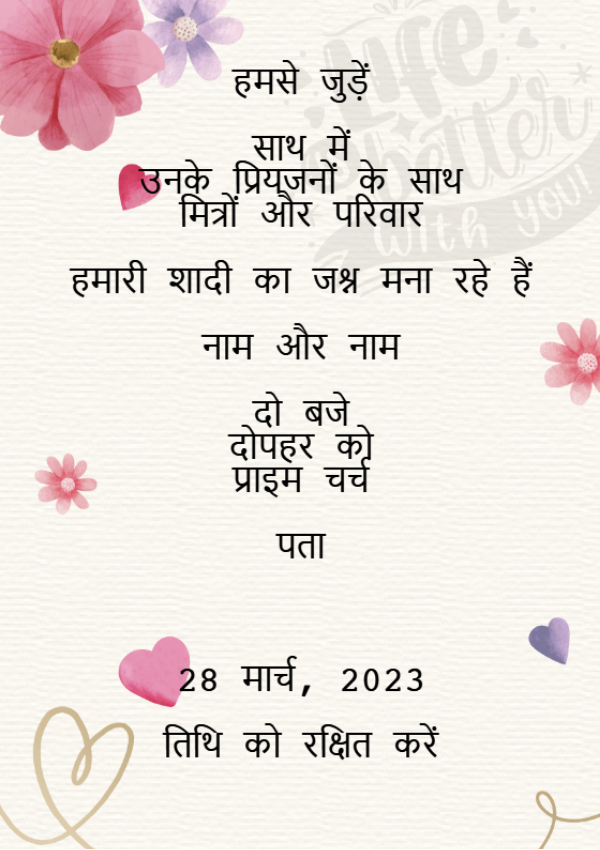 life
is
better
with you!
हमसे जुड़ें
साथ में
उनके प्रियजनों के साथ
मित्रों और परिवार
हमारी शादी का जश्न मना रहे हैं
नाम और नाम
दो बजे
दोपहर को
प्राइम चर्च
पता
28 मार्च, 2023
तिथि को रक्षित करें